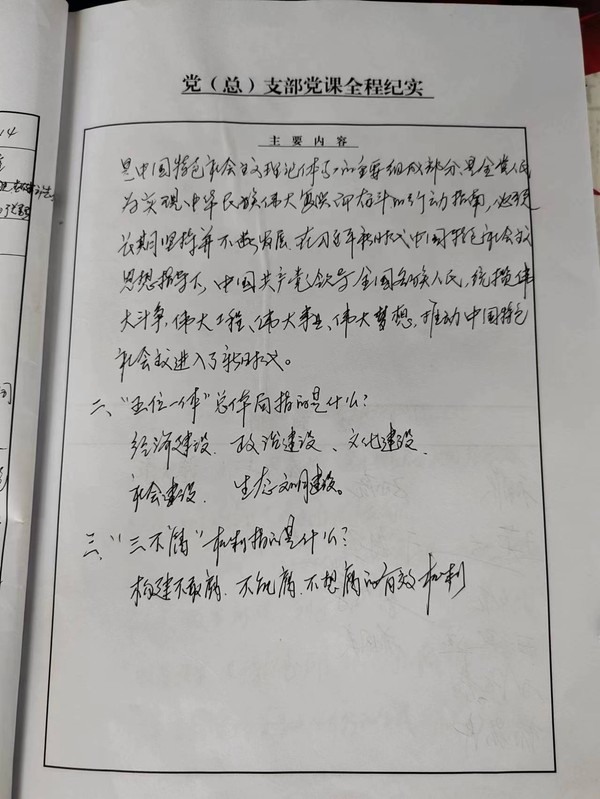 党（总）支部党课全程纪实
主要内容
是中国特色社会主义理论体系的重要组成部分,是全党人民
为实现中华民族伟大复兴而奋斗的行动指南,必须
长期坚持并不断发展.在习近平新时代中国特色社会主义
思想指导下,中国共产党领导全国各族人民,统揽伟
大斗争,伟大工程、伟大事业、伟大梦想,推动中国特色
社会主义进入了新时代。
二、“五位一体”总体布局指的是什么?
经济建设、政治建设、文化建设、
社会建设、生态文明建设。
三、“三不腐”机制指的是什么?
构建不敢腐、不能腐、不想腐的有效机制
14